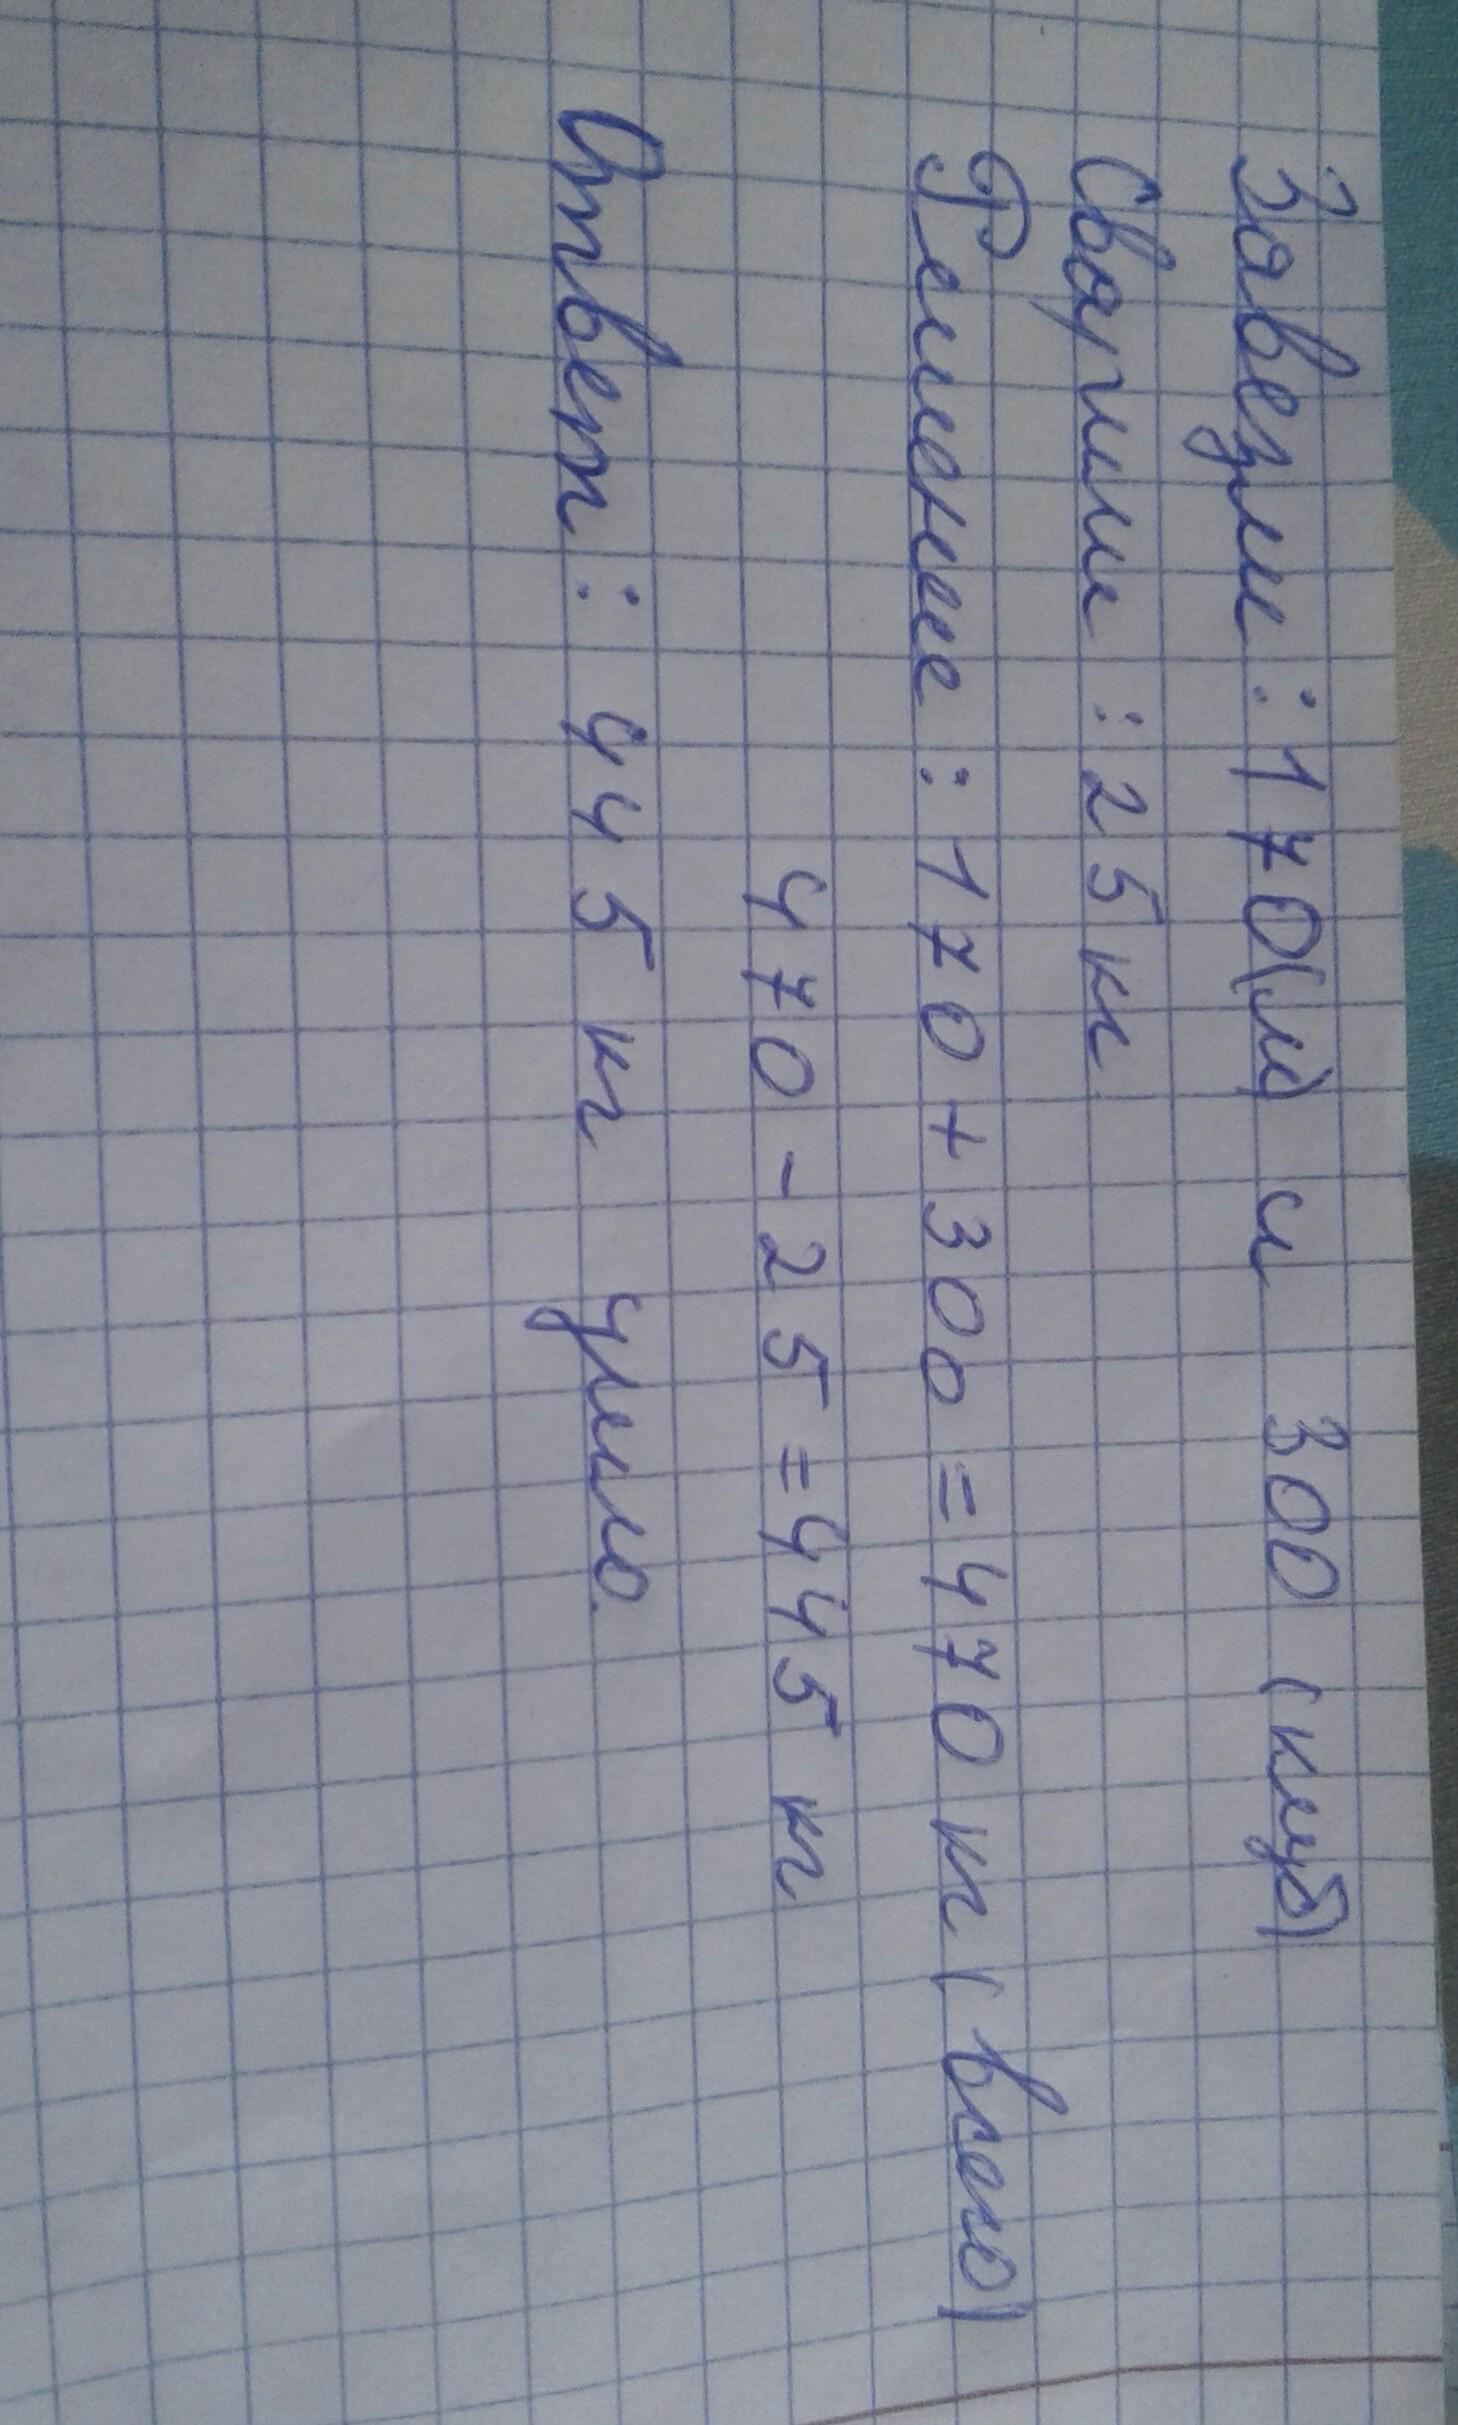 Завезли : 170(м) и 300 (клуб)
Сварили : 25 кг
Решение : 170 + 300 = 470 кг (всего)
470 - 25 = 445 кг
Ответ : 445 кг ушло.